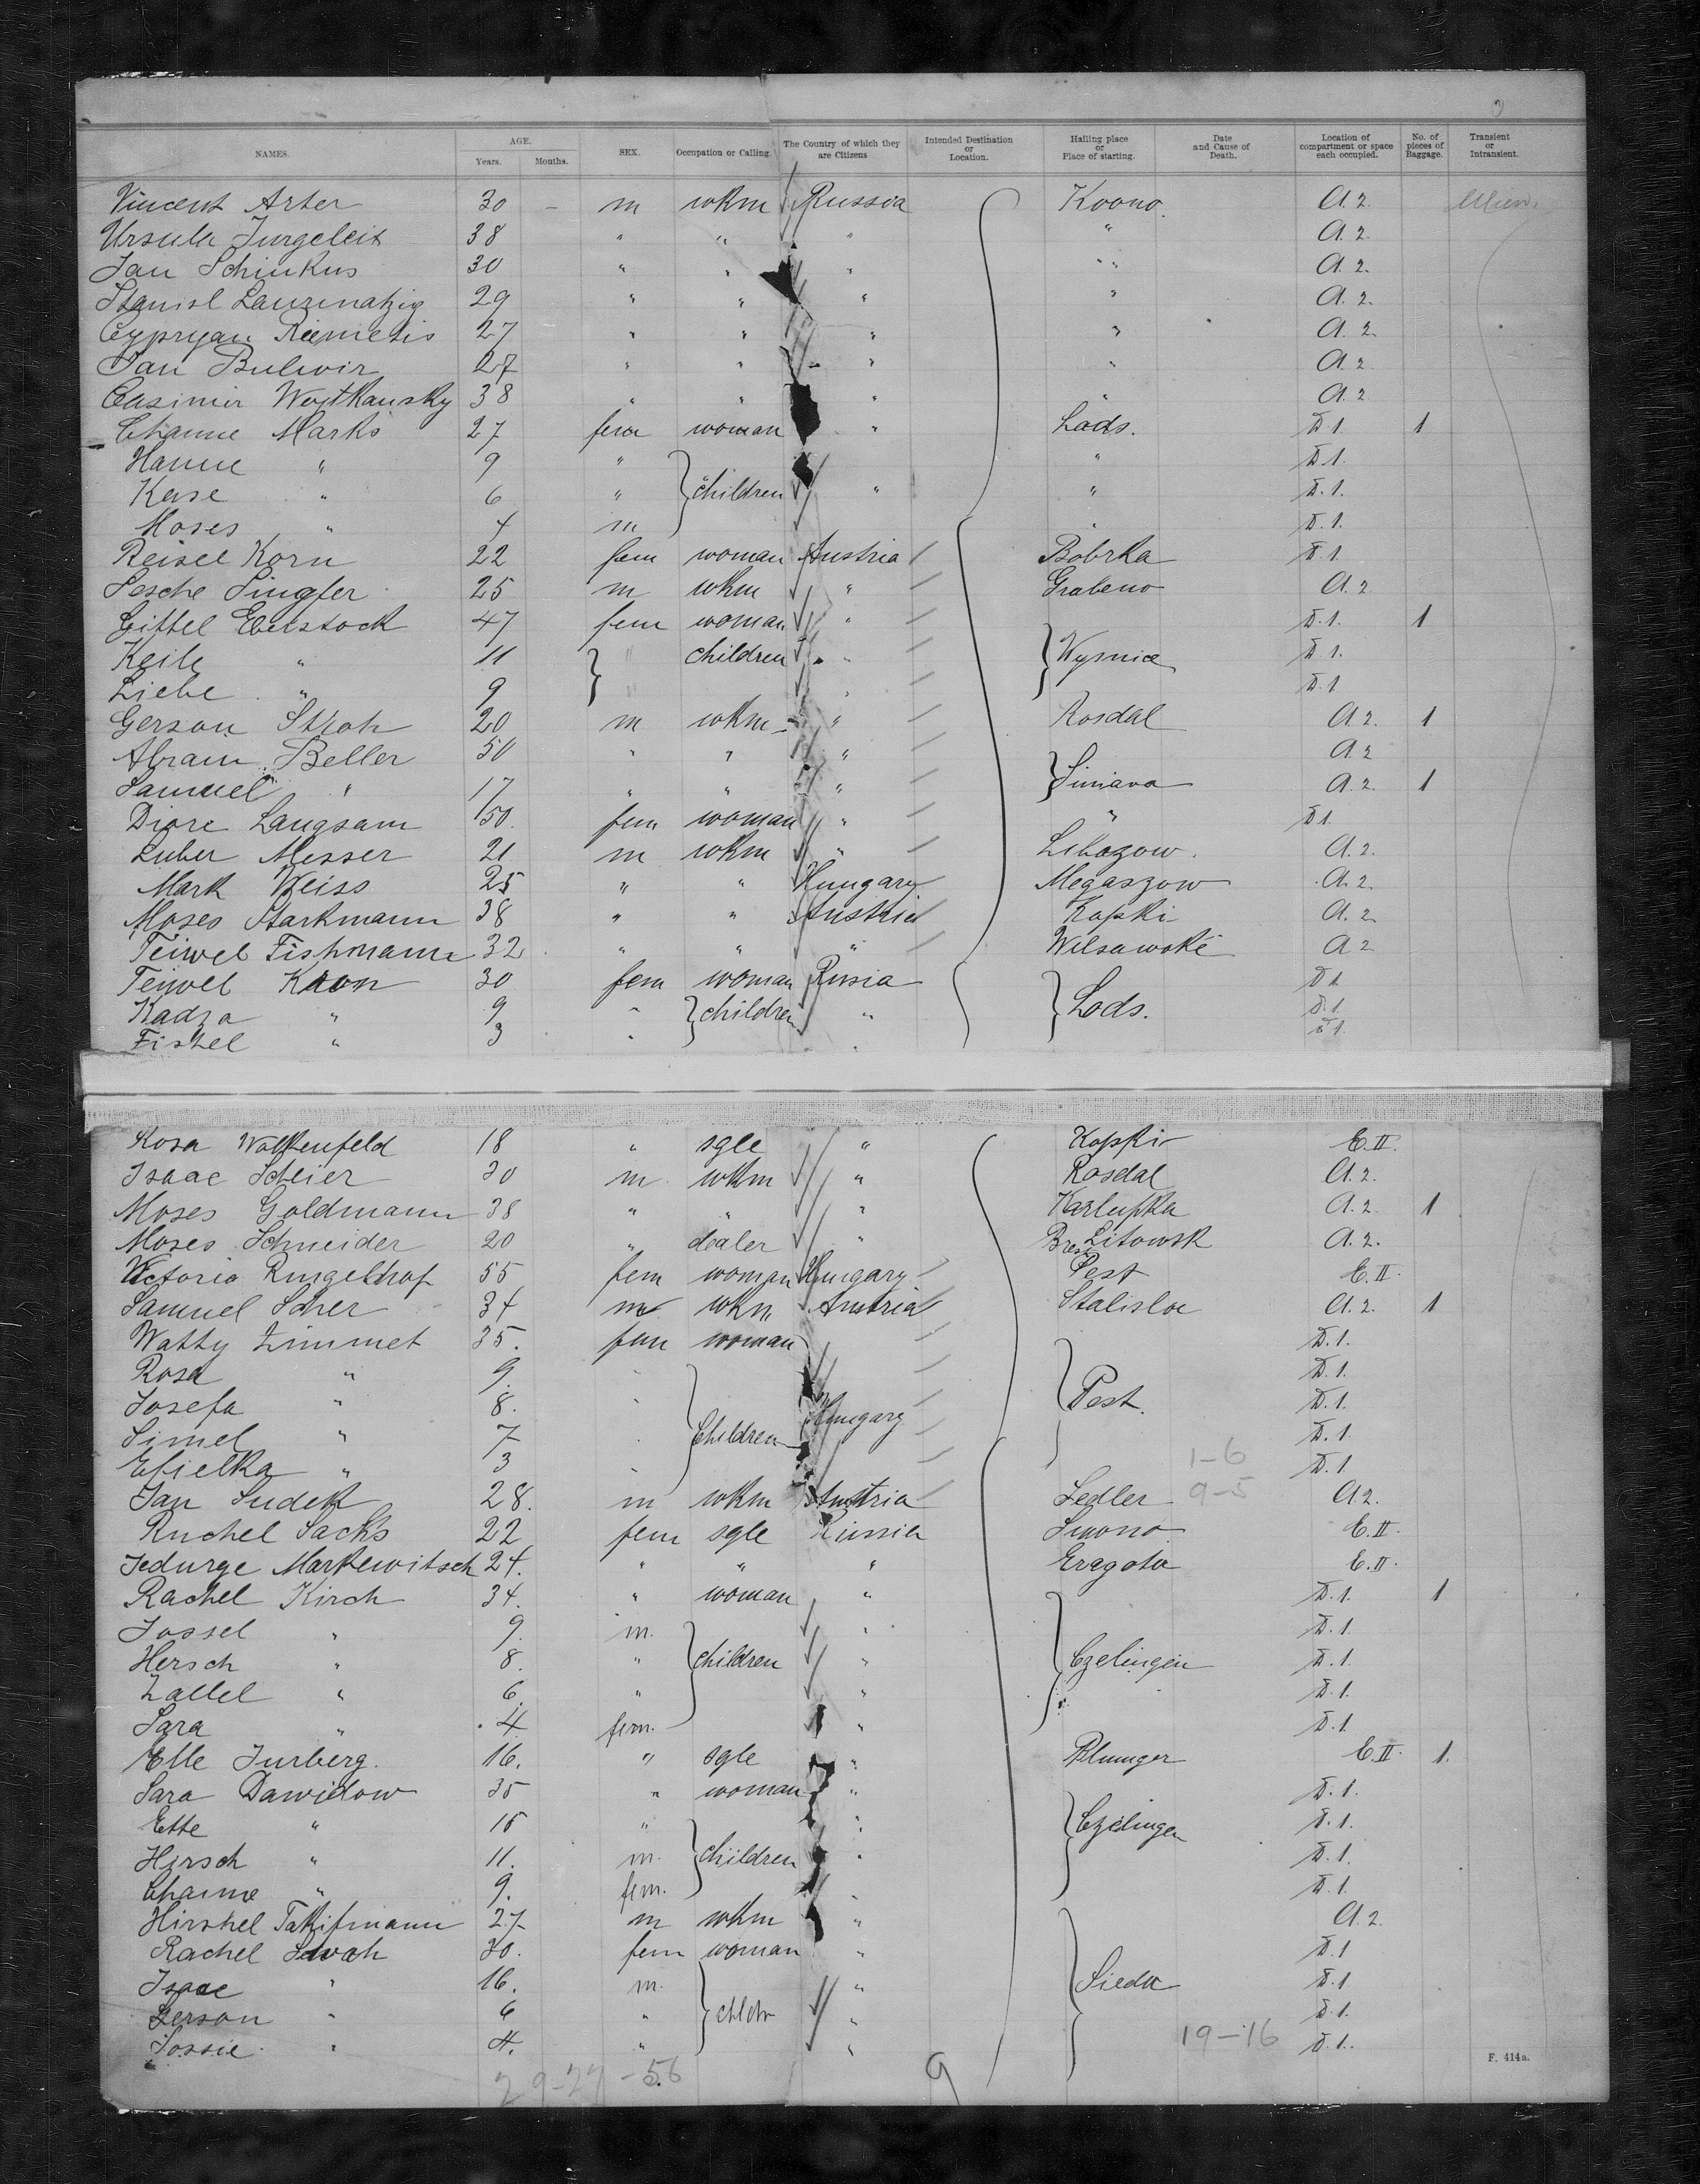 NAMES. AGE. Years. Months. SEX. Occupation or Calling. The Country of which they are Citizens Intended Destination or Location. Hailing place or Place of starting. Date and Cause of Death. Location of compartment or space each occupied. No. of pieces of Baggage. Transient or Intransient.
Vincent Arter 30 – m wkm Russia Kovno. A. 2.
Ursula Jurgeleit 38 " " " " A. 2.
Jan Schinkus 30 " " " " A. 2.
Stanisl 29 " " " " A. 2.
Cypryan 27 " " " " A. 2.
Jan Bulwir 27 " " " " A. 2
Casimir Woytkunsky 38 " " " " A. 2
Channe Marks 27 fem woman " Lods. D 1. 1
Hanne " 9 " " D 1.
Kase " 6 " children " " D. 1.
Moses " 4 m " D. 1.
Reisel Korn 22 fem woman Austria Bobrka D 1
Sesche Singfer 25 m wkm " Grabeno A. 2
Gittel Eberstock 47 fem woman " D. 1. 1
Keile " 11 " children " Wysnice D. 1.
Liebe " 9 " " D. 1
Gerson Stroh 20 m wkm " Rosdal A 2. 1
Abram Beller 50 " " " A. 2
Samuel " 17 " " " Siniava A. 2. 1
Diore Langsam 50 fem woman " " D 1.
Luber Messer 21 m wkm " Libozow. A. 2.
Mark Weiss 25 " " Hungary Megaszow A. 2.
Moses Starkmann 38 " " Austria Kopki A. 2
Teiwel Fishmann 32 " " " Wilsawske A 2
Teiwel Kron 30 fem woman Russia D 1
Kadza " 9 " children " Lods. D. 1
Fishel " 3 " " D 1.
Rosa Wolkenfeld 18 " sgle " Kopki E. II.
Isaac Schier 30 m. wkm " Rosdal A. 2.
Moses Goldmann 38 " " " Karlupka A. 2. 1
Moses Schneider 20 " dealer " Brest Litowsk A. 2.
Victoria Ringelhof 55 fem woman Hungary Pest E. II.
Samuel Scher 34 m wkm Austria Stalisloe A. 2. 1
Watty Zimmet 35. fem woman D. 1.
Rosa " 9. " D. 1.
Josefa " 8. " Hungary Pest. D. 1.
Simel " 7 " Children D. 1.
Efielka " 3 " 1-6 D. 1
Jan Sudek 28. m wkm Austria Sedler 9-5 A 2.
Ruchel Sacks 22 fem sgle Russia Suono E. II.
Jedurge Markewitsch 24. " " " Eragola E. II.
Rachel Kirch 34. " woman " D. 1. 1
Jossel " 9. m. " D. 1.
Hersch " 8. " children " Czelingin D. 1.
Zallel " 6. " " D. 1.
Sara " 4 fem. " D. 1
Elle Jurberg. 16. " sgle " Plunger E. II. 1.
Sara Dawidow 35 " woman " D. 1.
Ette " 15 " " Czelingen D. 1.
Hirsch " 11. m. children " D. 1.
Channe " 9. fem. " D. 1.
Hirshel Takifmann 27 m wkm " A. 2.
Rachel 30. fem woman " D. 1
Isaac " 16. m. " Sieda D. 1
Gerson " 6 " chldr " D. 1.
Jossie " 4. " " 19-16 D. 1.
F. 414a.
29-27-56 9